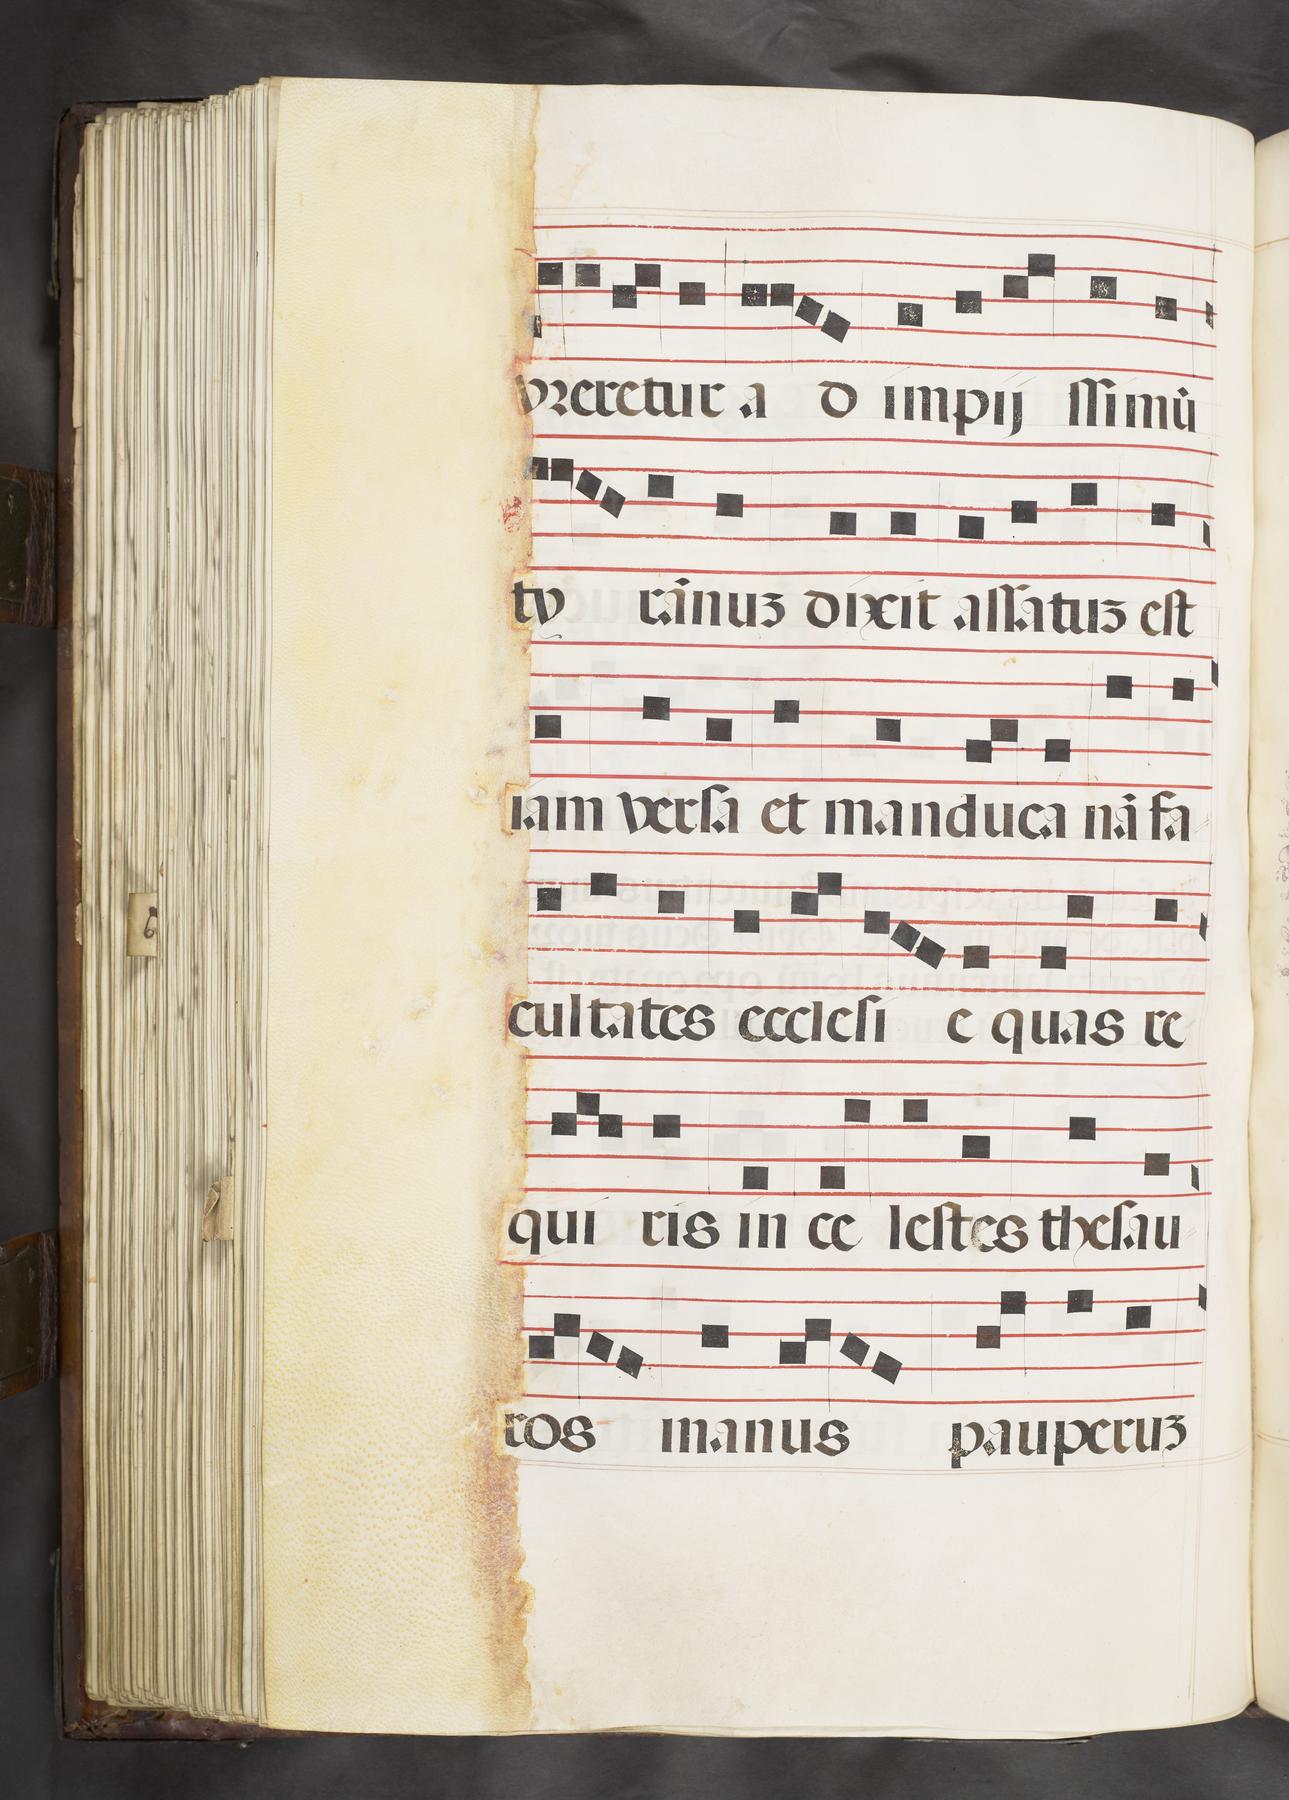 vreretur a d impij ssimū
ty rānuz dixit assatuz est
iam versa et manduca nā fa
cultates ecclesi e quas re
qui ris in ce lestes thesau
ros manus pauperuz
6